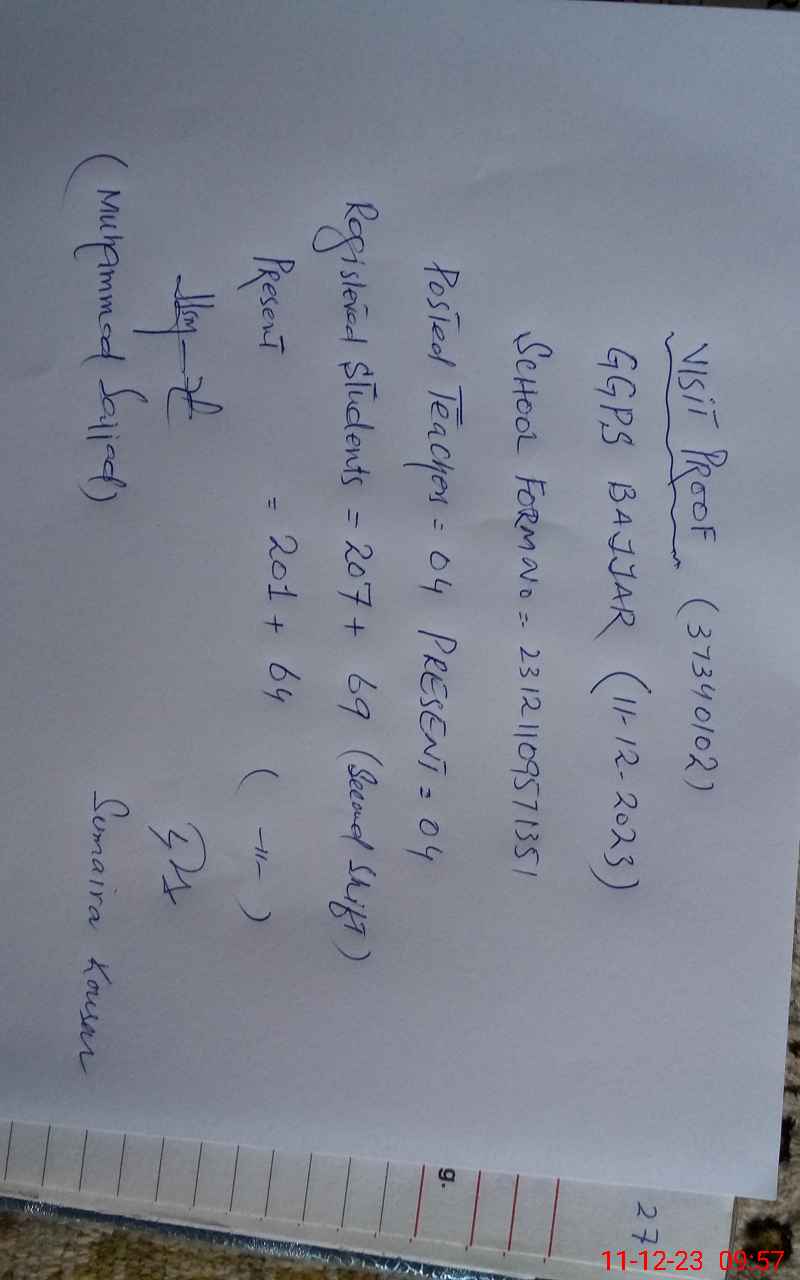 VISIT PROOF (37340102)
GGPS BAJJAR (11-12-2023)
SCHOOL FORM No = 23121109571351
Posted Teachers = 04 PRESENT = 04
Registered Students = 207 + 69 (Second Shift)
Present = 201 + 64 ( -11- )
(Muhammad Sajjad)
Sumaira Kousar
27
9.
11-12-23 09:57